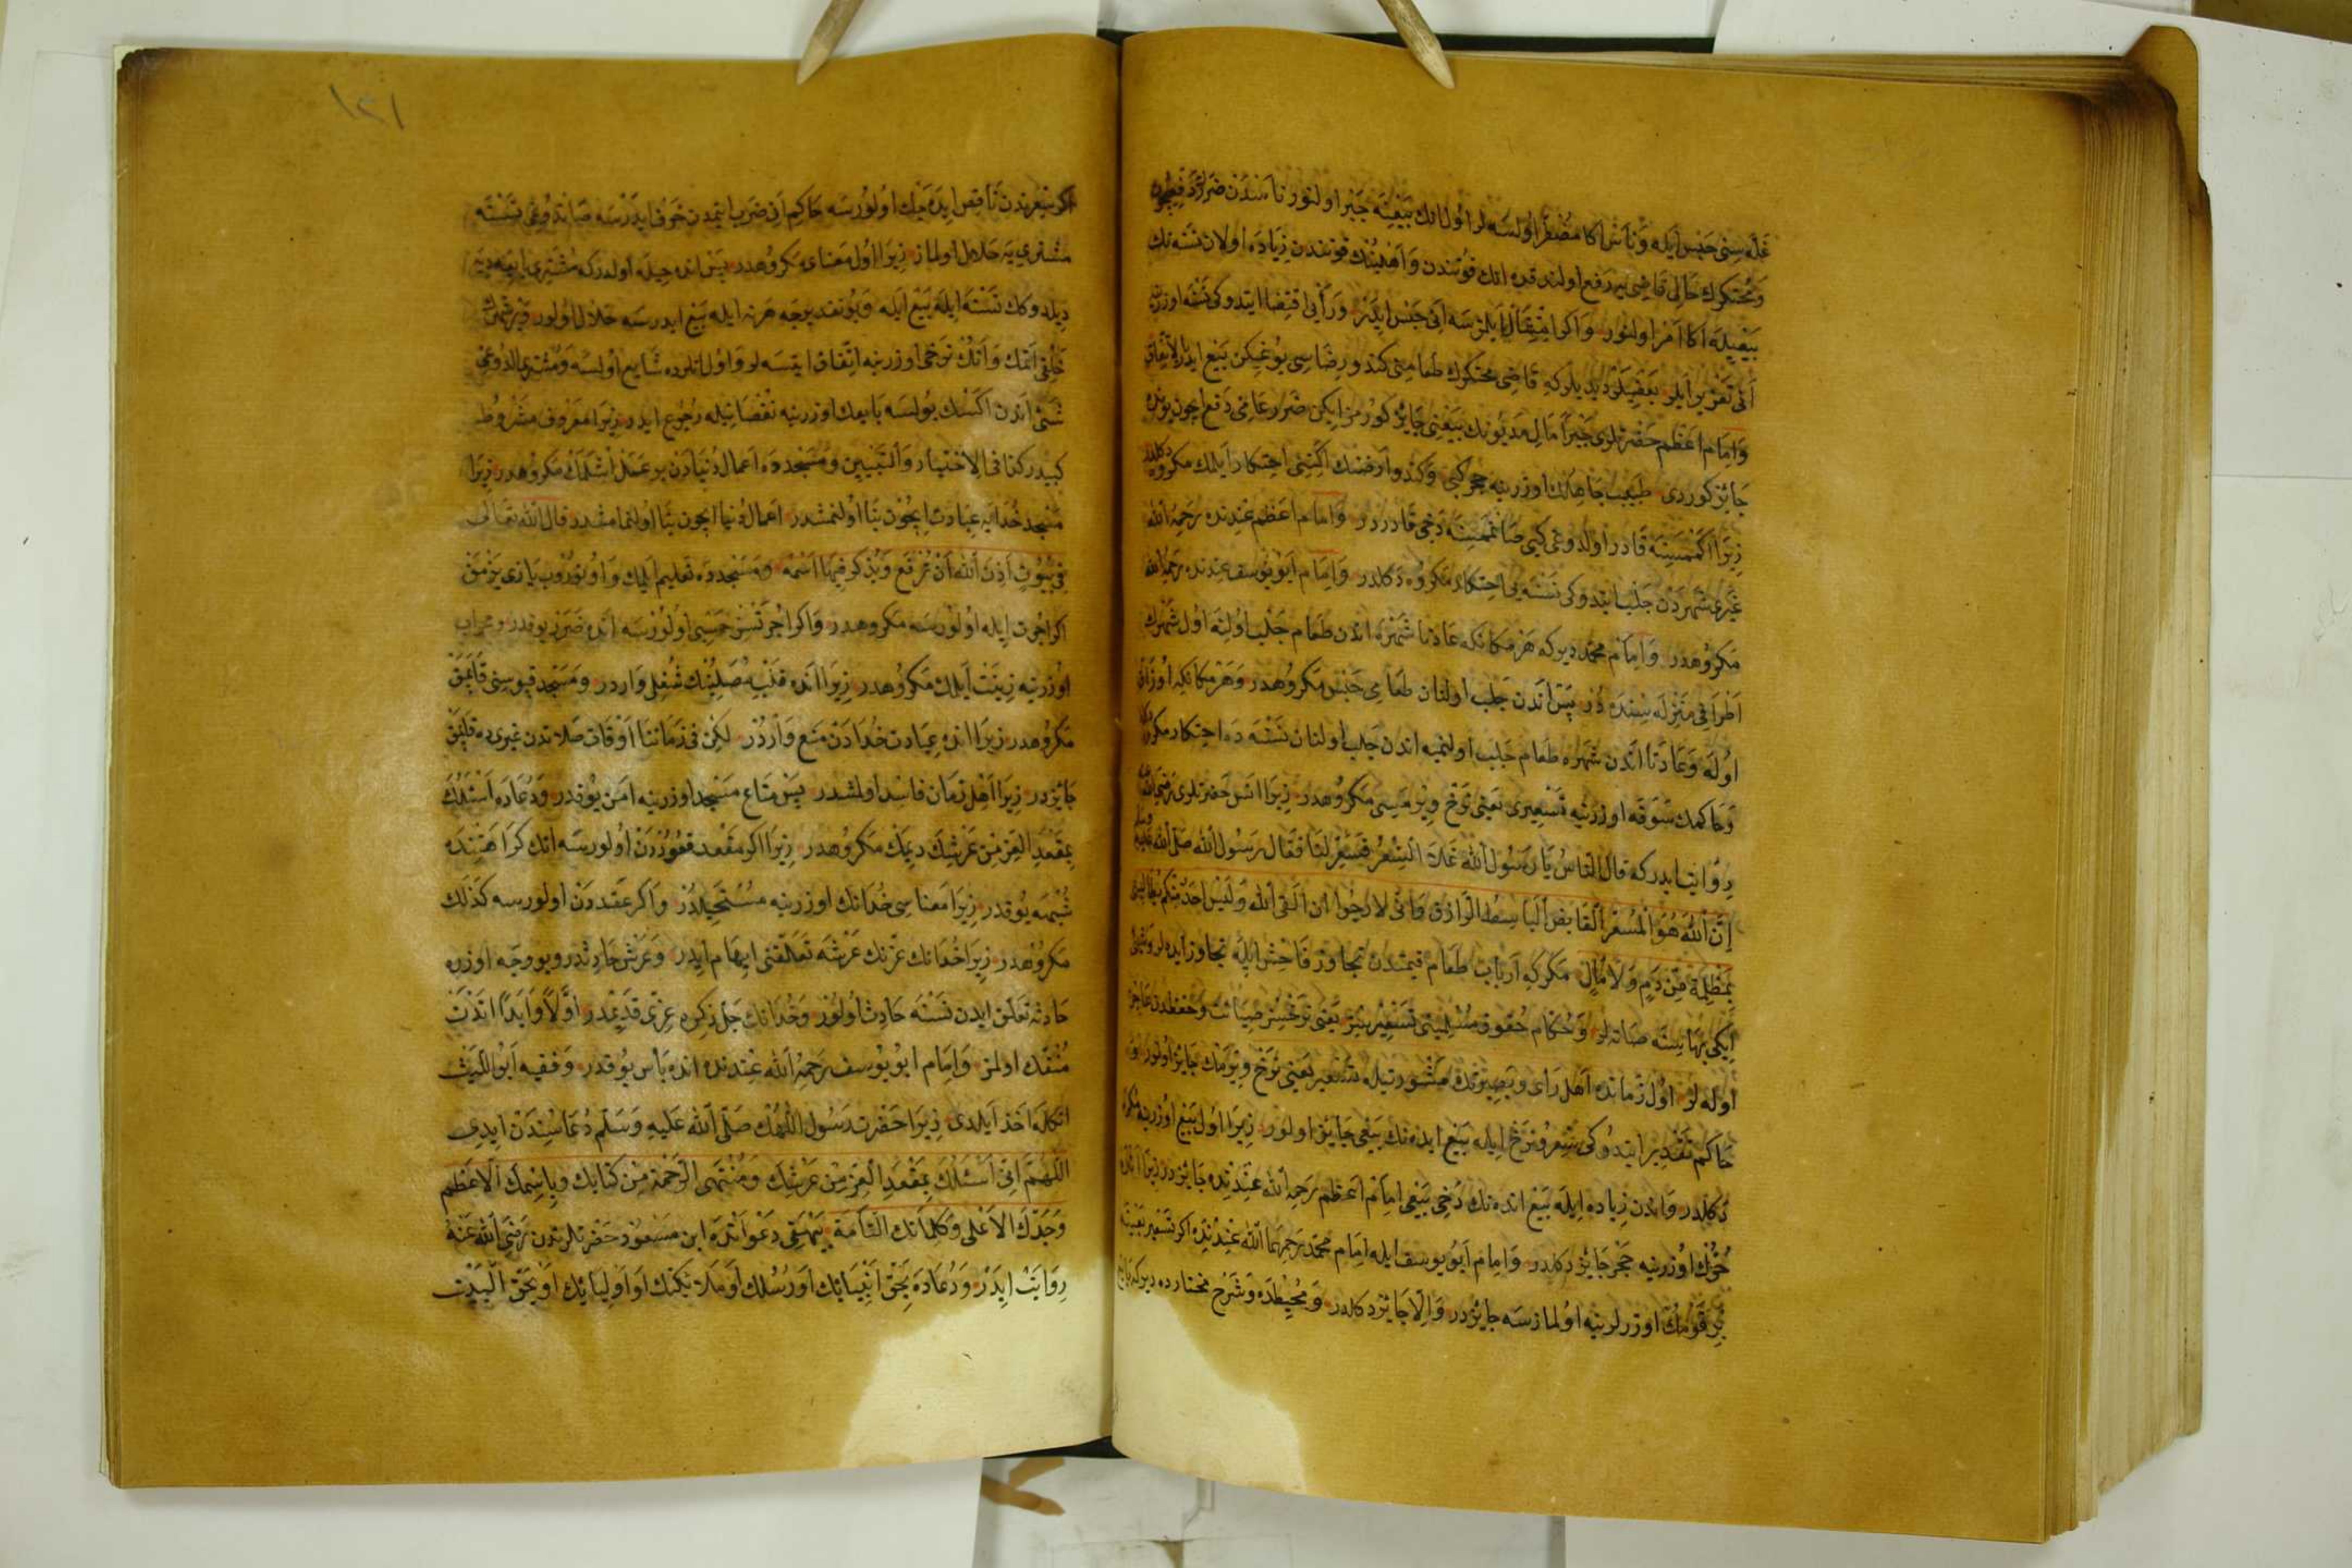 غله سنی حبس ایله و ناس اکا مضطر اولسه لر اول انک بیعینه جبر اولنور ناسندن ضرر دفعیچون
و محتکرک حالی قاضی یه رفع اولندقده انک قوتندن و اهلینک قوتندن زیاده اولان نسنه نک
بیعیله اکا امر اولنور و اکر امتثال ایلمزسه انی حبس ایلیه و رأیی اقتضا ایتدوکی نسنه اوزره
انی تعزیر ایلر بعضیلر دیدیلر که قاضی محتکرک طعامنی کندو رضاسی یوغیکن بیع ایدر بالاتفاق
و امام اعظم حضرتلری جبرا مال مدیونک بیعنی جایز کورمز ایکن ضرر عامی دفع ایچون بونده
جایز کوردی طبیب جاهلک اوزرینه حجر کبی و کندو ارضنک اکینی احتکار ایلمک مکروه دکلدر
زیرا اکممسینه قادر اولدوغی کبی صاتممسینه دخی قادردر و امام اعظم عندنده رحمه الله
غیری شهردن جلب ایتدوکی نسنه یی احتکار مکروه دکلدر و امام ابو یوسف عندنده رحمه الله
مکروهدر و امام محمد دیر که هر مکانکه عادتا شهره اندن طعام جلب اولنه اول شهرک
اطرافی منزله سنده در پس اندن جلب اولنان طعامی حبس مکروهدر و هر مکانکه اوزاق
اوله و عادتا اندن شهره طعام جلب اولنمیه اندن جلب اولنان نسنه ده احتکار مکروه دکلدر
و حاکمک سوقه اوزرینه تسعیری یعنی نرخ ویرمیسی مکروهدر زیرا انس حضرتلری رضی الله عنه
روایت ایدر که قال الناس یا رسول الله غلا السعر فسعر لنا فقال رسول الله صلی الله علیه وسلم
ان الله هو المسعر القابض الباسط الرازق و انی لارجوا ان القی الله و لیس احد منکم یطالبنی
بمظلمة من دم و لا مال مکر که ارباب طعام قیمتدن تجاوز فاحش ایله تجاوز ایده لر و شیئی
ایکی بهاسنه صاته لر و حکام حقوق مسلمینی تسعیرسز یعنی نرخسز صیانت و حفظدن عاجز
اوله لر اول زمانده اهل رأی و بصیرتک مشورتیله تسعیر یعنی نرخ ویرمک جایز اولور
حاکم تقدیر ایتدوکی سعر و نرخ ایله بیع ایدنک بیعی جایز اولور زیرا اول بیع اوزرینه مکره
دکلدر و اندن زیاده ایله بیع ایدنک دخی بیعی امام اعظم رحمه الله عندنده جایزدر زیرا انده
حرک اوزرینه حجر جایز دکلدر و امام ابو یوسف ایله امام محمد رحمهما الله عندنده اکر تسعیر بعینه
بر قومک اوزرلرینه اولمازسه جایزدر و الا جایز دکلدر و محیطده و شرح مختارده دیر که بایع
۱۲۱
اکر سعرندن ناقص ایده جک اولورسه حاکم انی ضرب ایتمدن خوف ایدرسه صاتدوغی نسنه
مشتری یه حلال اولماز زیرا اول معنای مکروهدر پس انده حیله اولدر که مشتری بایعه دیه
دیلدوکک نسنه ایله بیع ایله و بو تقدیرجه هر نه ایله بیع ایدرسه حلال اولور و بر شهرک
خلقی اتمک و اتک نرخی اوزرینه اتفاق ایتسه لر و اول انلرده شایع اولسه و مشتری الدوغی
شیئی اندن اکسک بولسه بایعک اوزرینه نقصانیله رجوع ایدر زیرا معروف مشروط
کبیدر کذا فی الاختیار و التبیین و مسجدده اعمال دنیادن بر عمل اشلمک مکروهدر زیرا
مسجد خدایه عبادت ایچون بنا اولنمشدر اعمال دنیا ایچون بنا اولنمامشدر قال الله تعالی
فی بیوت اذن الله ان ترفع و یذکر فیها اسمه و مسجدده تعلیم ایلمک و اوتوروب یازی یزمق
اکر اجرت ایله اولورسه مکروهدر و اکر اجرتسز حسبی اولورسه انده ضرر یوقدر و محراب
اوزرینه زینت ایلمک مکروهدر زیرا انده قلب مصلینک شغلی واردر و مسجد قپوسنی قاپمق
مکروهدر زیرا انده عبادت خدادن منع واردر لکن فی زماننا اوقات صلاتدن غیریده قاپمق
جایزدر زیرا اهل زمان فاسد اولمشدر پس متاع مسجد اوزرینه امن یوقدر و دعاده اسئلک
بمقعد العز من عرشک دیمک مکروهدر زیرا اکر مقعد قعوددن اولورسه انک کراهتنده
شبهه یوقدر زیرا معناسی خدانک اوزرینه مستحیلدر و اکر عقددن اولورسه کذلک
مکروهدر زیرا خدانک عزنک عرشه تعلقنی ایهام ایدر و عرش حادثدر و بو وجه اوزره
حادثه تعلق ایدن نسنه حادث اولور و خدانک جل ذکره عزی قدیمدر اولا و ابدا اندن
منفک اولمز و امام ابو یوسف رحمه الله عندنده انده بأس یوقدر و فقیه ابو اللیث
انکله اخذ ایلدی زیرا حضرت رسول اللهک صلی الله علیه وسلم دعاسندن ایدی
اللهم انی اسئلک بمقعد العز من عرشک و منتهی الرحمة من کتابک و باسمک الاعظم
و جدک الاعلی و کلماتک التامة بیهقی دعواتده ابن مسعود حضرتلرندن رضی الله عنه
روایت ایدر و دعاده بحق انبیائک او رسلک او ملائکتک او اولیائک او بحق البیت